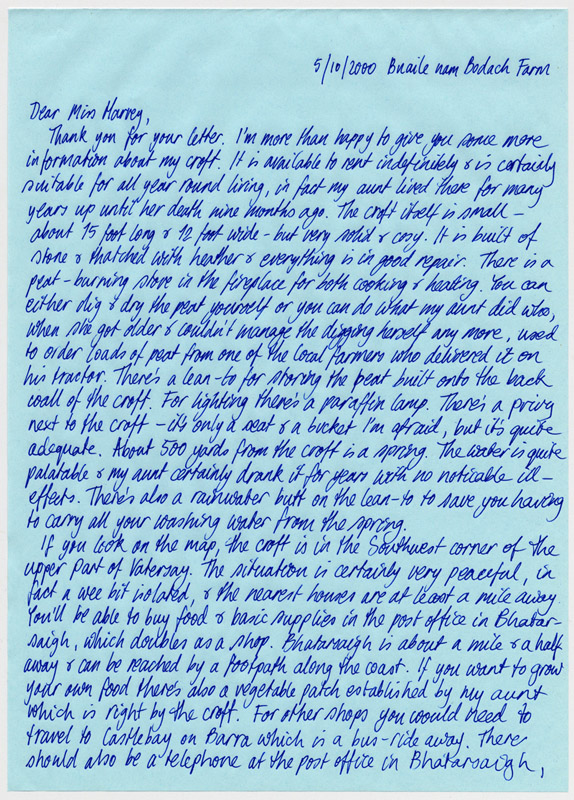 5/10/2000 Buaile nam Bodach Farm
Dear Miss Harvey,
Thank you for your letter. I'm more than happy to give you some more
information about my croft. It is available to rent indefinitely & is certainly
suitable for all year round living, in fact my aunt lived there for many
years up until her death nine months ago. The croft itself is small –
about 15 foot long & 12 foot wide – but very solid & cosy. It is built of
stone & thatched with heather & everything is in good repair. There is a
peat-burning stove in the fireplace for both cooking & heating. You can
either dig & dry the peat yourself or you can do what my aunt did who,
when she got older & couldn't manage the digging herself any more, used
to order loads of peat from one of the local farmers who delivered it on
his tractor. There's a lean-to for storing the peat built onto the back
wall of the croft. For lighting there's a paraffin lamp. There's a privy
next to the croft – it's only a seat & a bucket I'm afraid, but it's quite
adequate. About 500 yards from the croft is a spring. The water is quite
palatable & my aunt certainly drank it for years with no noticable ill-
effects. There's also a rainwater butt on the lean-to to save you having
to carry all your washing water from the spring.
If you look on the map, the croft is in the Southwest corner of the
upper part of Vatersay. The situation is certainly very peaceful, in
fact a wee bit isolated, & the nearest houses are at least a mile away.
You'll be able to buy food & basic supplies in the post office in Bhatar-
saigh, which doubles as a shop. Bhatarsaigh is about a mile & a half
away & can be reached by a footpath along the coast. If you want to grow
your own food there's also a vegetable patch established by my aunt
which is right by the croft. For other shops you would need to
travel to Castlebay on Barra which is a bus-ride away. There
should also be a telephone at the post office in Bhatarsaigh,